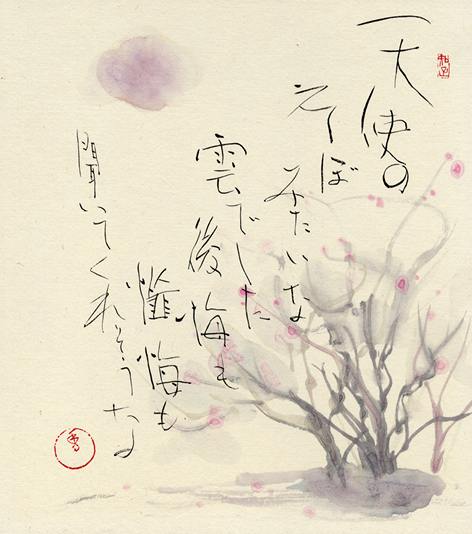 天使の
えくぼ
みたいな
雲でした
後悔も
懺悔も
聞いてくれそうな